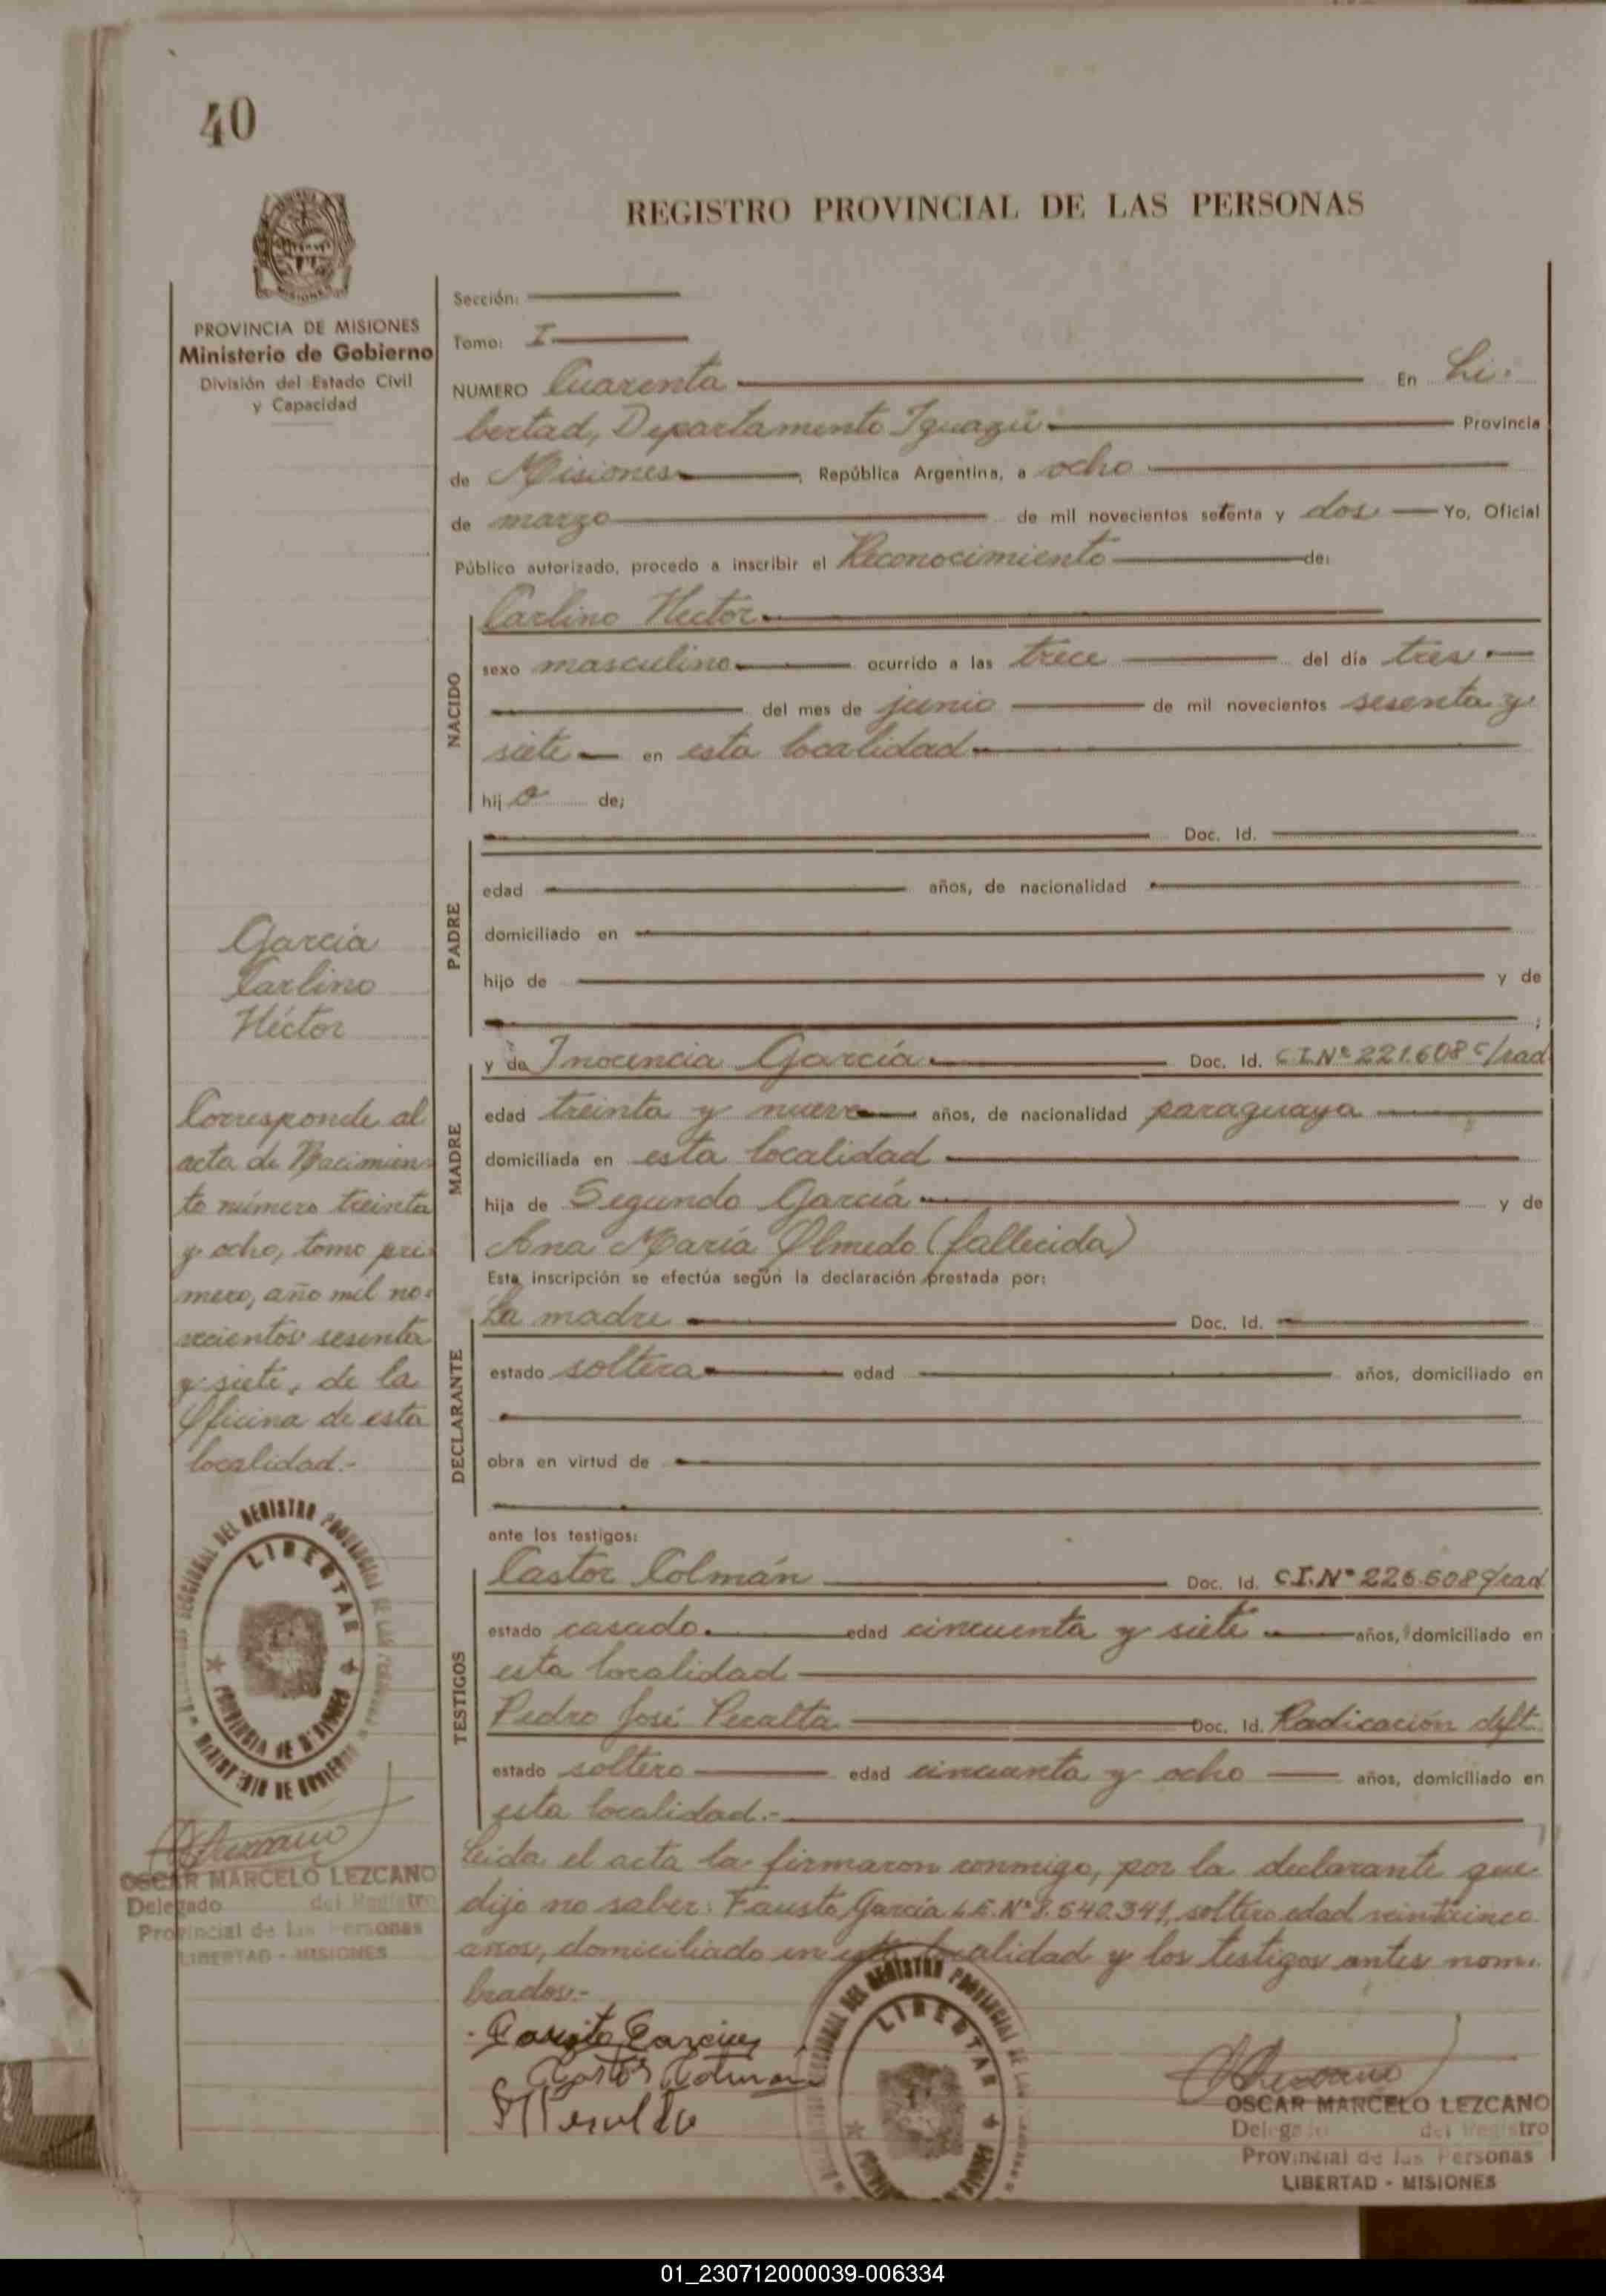 40
REGISTRO PROVINCIAL DE LAS PERSONAS
PROVINCIA DE MISIONES
Ministerio de Gobierno
División del Estado Civil
y Capacidad
Sección:
Tomo: I
NUMERO Cuarenta En Li-
bertad, Departamento Iguazú Provincia
de Misiones, República Argentina, a ocho
de marzo de mil novecientos setenta y dos Yo, Oficial
Público autorizado, procedo a inscribir el Reconocimiento de:
NACIDO
Carlino Hector
sexo masculino ocurrido a las trece del día tres
del mes de junio de mil novecientos sesenta y
siete en esta localidad
hijo de;
PADRE
Doc. Id.
edad años, de nacionalidad
domiciliado en
hijo de y de
;
MADRE
y de Inocencia García Doc. Id. C.I.Nº 221.608 c/rad
edad treinta y nueve años, de nacionalidad paraguaya
domiciliada en esta localidad
hija de Segundo García y de
Ana María Olmedo (fallecida)
Esta inscripción se efectúa según la declaración prestada por:
DECLARANTE
La madre Doc. Id.
estado soltera edad años, domiciliado en
obra en virtud de
ante los testigos:
TESTIGOS
Castor Colmán Doc. Id. C.I.Nº 226.508 c/rad
estado casado. edad cincuenta y siete años, domiciliado en
esta localidad
Pedro José Peralta Doc. Id. Radicación deft.
estado soltero edad cincuenta y ocho años, domiciliado en
esta localidad.-
Leida el acta la firmaron conmigo, por la declarante que
dijo no saber: Fausto García L.E.Nº 8.540.341, soltero edad veinticinco
años, domiciliado en esta localidad y los testigos antes nom-
brados.-
García
Carlino
Héctor
Corresponde al
acta de Nacimien-
to número treinta
y ocho, tomo pri-
mero, año mil no-
vecientos sesenta
y siete, de la
Oficina de esta
localidad.-
SECCIONAL DEL REGISTRO PROVINCIAL DE LAS PERSONAS
LIBERTAD
PROVINCIA DE MISIONES
MINISTERIO DE GOBIERNO
OSCAR MARCELO LEZCANO
Delegado del Registro
Provincial de las Personas
LIBERTAD - MISIONES
Castor Colman
SECCIONAL DEL REGISTRO PROVINCIAL DE LAS
LIBERTAD
OSCAR MARCELO LEZCANO
Delegado del Registro
Provincial de las Personas
LIBERTAD - MISIONES
01_230712000039-006334